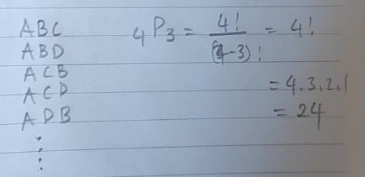 ABC
ABD
ACB
ACD
ADB
⋮
₄P₃ = 4!/(4-3)! = 4!
= 4.3.2.1
= 24